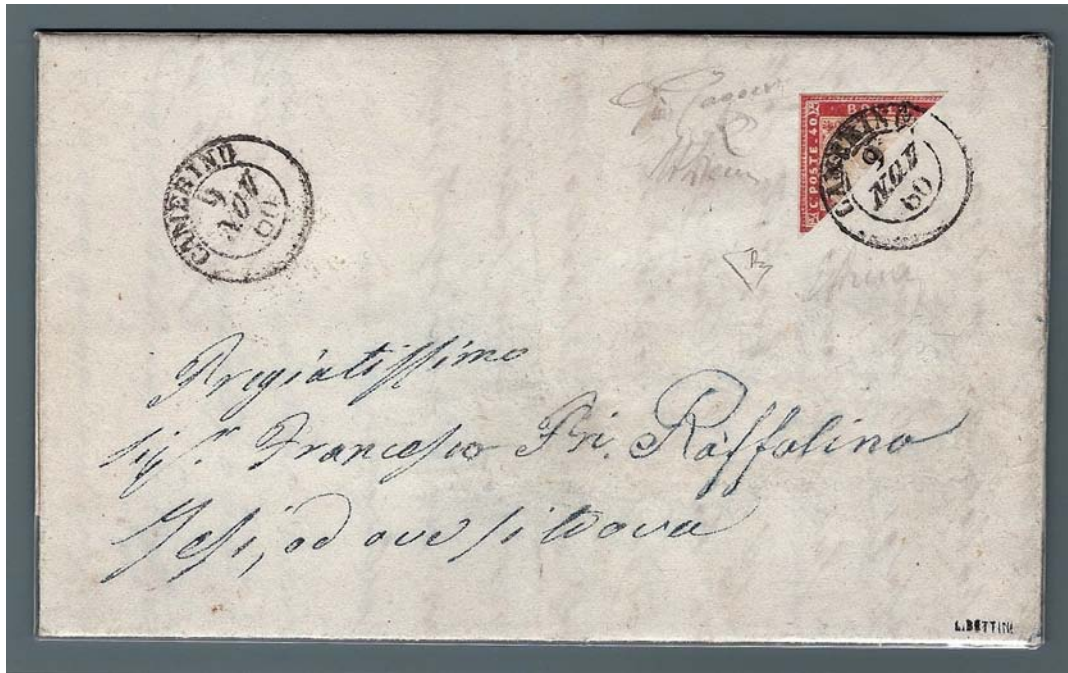 CAMERINO
9
NOV
60
C. POSTE. 40
BOLL
CAMERINO
9
NOV
60
Pregiatissimo
Sigr. Francesco Raffolino
Jesi, od ove si trova
L. BETTINI